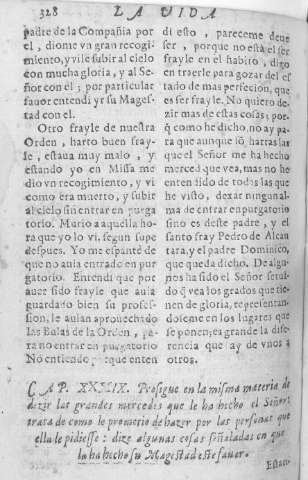 328 LA VIDA
padre de la Compañia por
el, diome vn gran recogi-
miento, y vile subir al cielo
con mucha gloria, y al Se-
ñor con el; por particular
fauor entendi yr su Mages-
tad con el.
Otro frayle de nuestra
Orden, harto buen fray-
le, estaua muy malo, y
estando yo en Missa me
dio vn recogimiento, y vi
como era muerto, y subir
al cielo sin entrar en purga
torio. Murio a aquella ho-
ra que yo lo vi, segun supe
despues. Yo me espantè de
que no auia entrado en pur
gatorio. Entendi que por
auer sido frayle que auia
guardado bien su profes-
sion, le auian aprouechado
las Bulas de la Orden, pa-
ra no entrar en purgatorio
No entiendo porque enten
di esto, pareceme deue
ser, porque no està el ser
frayle en el habito, digo
en traerle para gozar del es
tado de mas perfecion, que
es ser frayle. No quiero de-
zir mas de estas cosas; porq̃
como he dicho, no ay pa-
ra que aunque sõ hartas las
que el Señor me ha hecho
merced que vea, mas no he
entendido de todas las que
he visto, dexar ningun al-
ma de entrar en purgatorio
sino es deste padre, y el
santo fray Pedro de Alcan
tara, y el padre Dominico,
que queda dicho. De algu-
nos ha sido el Señor serui-
do q̃ vea los grados que tie-
nen de gloria, representan-
doseme en los lugares que
se ponen; es grande la dife-
rencia que ay de vnos a
otros.
CAP. XXXIX. Prosigue en la misma materia de
dezir las grandes mercedes que le ha hecho el Señor:
trata de como le prometio de hazer por las personas que
ella le pidiesse: dize algunas cosas señaladas en que
lo ha hecho su Magestad este fauor.
Estan-